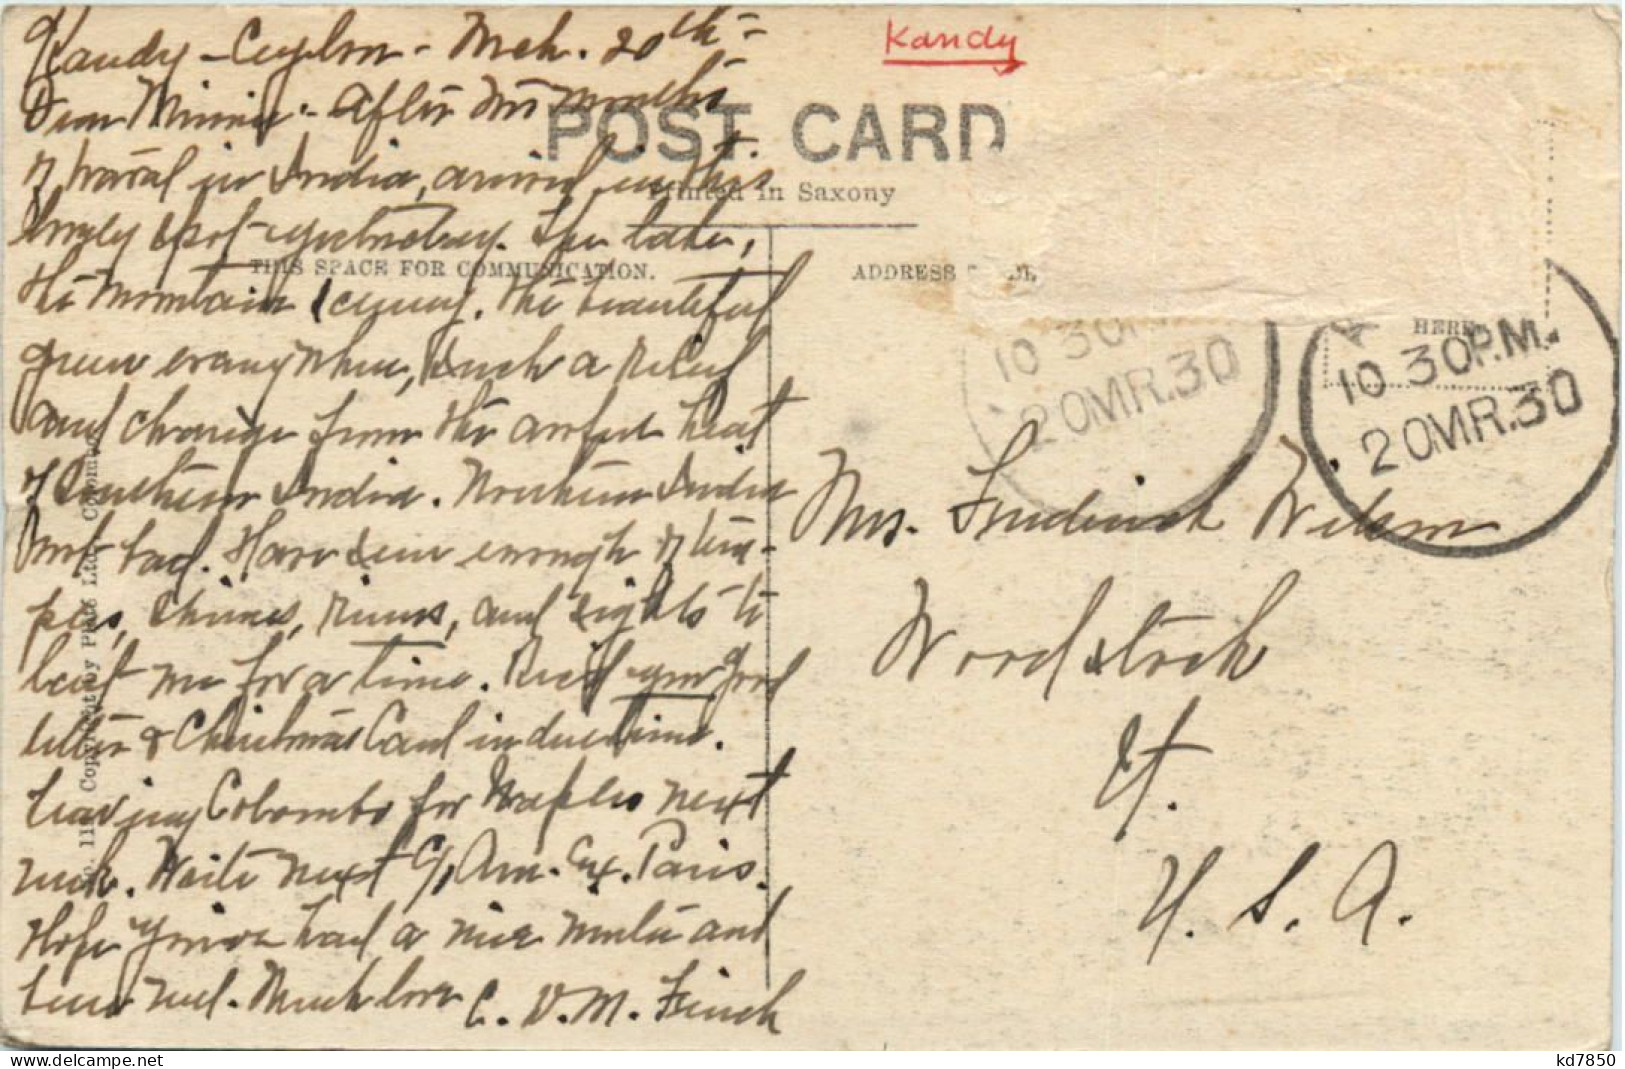 Kandy
Kandy - Ceylon - Mch. 20th -
Dear Minnie - After two months
of travel in India, arrived in this
lovely spot yesterday. The lake,
the mountain scenery. The beautiful
green everywhere, such a relief
and change from the awful heat
of Southern India. Northern India
not bad. Have seen enough of tem-
ples, shrines, ruins, and sights to
last me for a time. Rec'd your good
letter & Christmas Card in due time.
Leaving Colombo for Naples next
week. Write next c/o Am. Ex. Paris.
Hope you've had a nice winter and
been well. Much love C. V. M. Finch
POST CARD
Printed in Saxony
THIS SPACE FOR COMMUNICATION.
ADDRESS
HERE
10 30P.M.
20MR.30
10 30P
20MR.30
Mrs. Frederick Wilson
Woodstock
Vt.
U. S. A.
Copyright by Plâté Ltd., Colombo
kd7850
www.delcampe.net